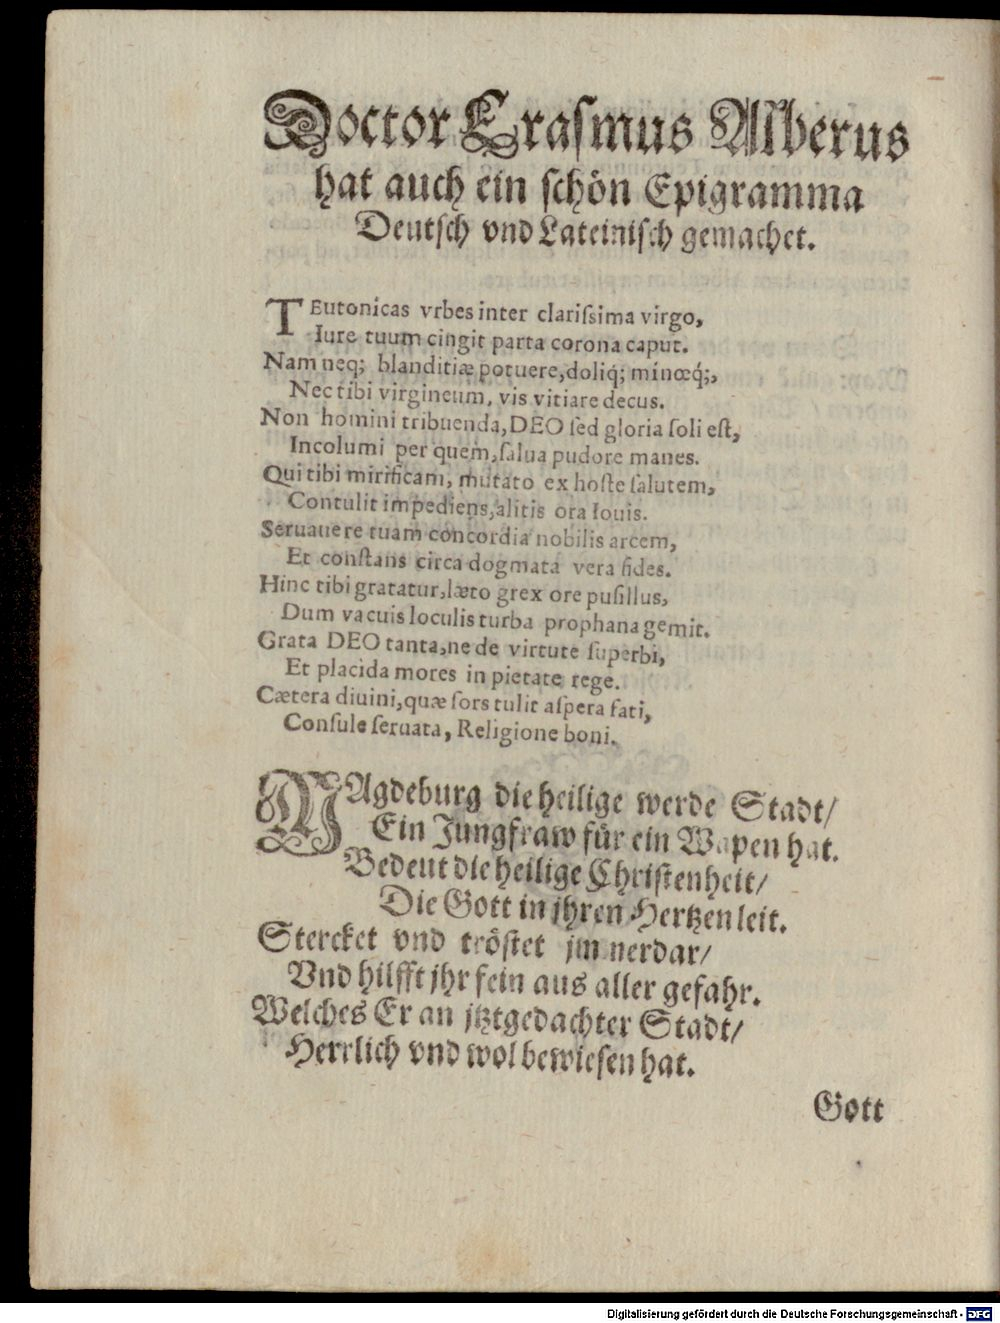 Doctor Erasmus Alberus
hat auch ein schön Epigramma
Deutsch vnd Lateinisch gemachet.
TEutonicas vrbes inter clariſsima virgo,
Iure tuum cingit parta corona caput.
Nam neq; blanditiæ potuere, doliq́; minœq́;,
Nec tibi virgineum, vis vitiare decus.
Non homini tribuenda, DEO ſed gloria ſoli eſt,
Incolumi per quem, ſalua pudore manes.
Qui tibi mirificam, mutato ex hoſte ſalutem,
Contulit impediens, alitis ora Iouis.
Seruauere tuam concordia nobilis arcem,
Et conſtans circa dogmata vera fides.
Hinc tibi gratatur, læto grex ore puſillus,
Dum vacuis loculis turba prophana gemit.
Grata DEO tanta, ne de virtute ſuperbi,
Et placida mores in pietate rege.
Cætera diuini, quæ ſors tulit aſpera fati,
Conſule ſeruata, Religione boni.
MAgdeburg die heilige werde Stadt/
Ein Jungfraw für ein Wapen hat.
Bedeut die heilige Chriſtenheit/
Die Gott in jhren Hertzen leit.
Stercket vnd tröſtet jm nerdar/
Vnd hilfft jhr fein aus aller gefahr.
Welches Er an jtztgedachter Stadt/
Herrlich vnd wol bewieſen hat.
Gott
Digitalisierung gefördert durch die Deutsche Forschungsgemeinschaft - DFG